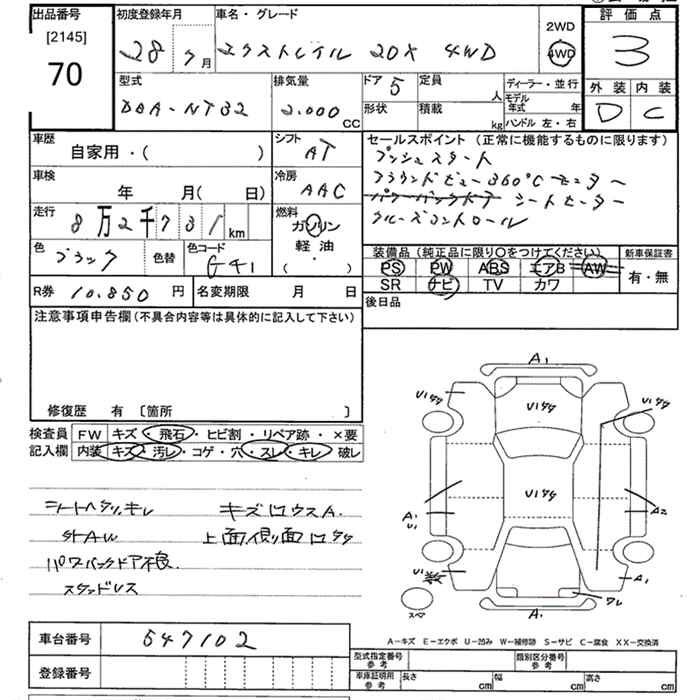 出品番号
[2145]
70
初度登録年月
28 7月
車名・グレード
エクストレイル 20X 4WD
2WD
4WD
評価点
3
外装 内装
D C
型式
DBA-NT32
排気量
2.000 CC
ドア 5
形状
定員 人
積載 kg
ディーラー・並行
モデル年式 年
ハンドル 左・右
車歴
自家用・( )
シフト
AT
車検
年 月( 日)
冷房
AAC
走行
8万2千731km
燃料
ガソリン
軽油
( ・ )
色
ブラック
色替
色コード
G41
R券 10.850 円
名変期限 月 日
セールスポイント(正常に機能するものに限ります)
プッシュスタート
アラウンドビュー360°C モニター
パワーバックドア シートヒーター
クルーズコントロール
装備品(純正品に限り○をつけてください)
PS PW ABS エアB AW
SR ナビ TV カワ
新車保証書
有・無
後日品
注意事項申告欄(不具合内容等は具体的に記入して下さい)
修復歴 有 〔箇所 〕
検査員記入欄
FW キズ・飛石・ヒビ割・リペア跡・×要
内装 キズ・汚レ・コゲ・穴・スレ・キレ・破レ
シートヘタリ、キレ キズロウスA.
外AW 上面側面ロタタ
パワバックドア不良.
スタッドレス
A1
U1タタ
U1タタ
U1タタ
U1タタ
A1
U1
A2
U1
A1
ワレ
スペア
A1
A-キズ E-エクボ U-凹み W-補修跡 S-サビ C-腐食 XX-交換済
車台番号 547102
登録番号
型式指定番号
参考
類別区分番号
参考
車庫証明用
参考
長さ cm
幅 cm
高さ cm